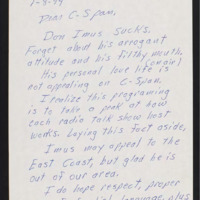 Dear C-Span,
Don Imus sucks.
Forget about his arrogant
attitude and his filthy mouth.
(on air)
His personal love life is
not appealing on C-Span.
I realize this programing
is to take a peek at how
each radio talk show host
works. Laying this fact aside,
Imus may appeal to the
East Coast, but glad he is
out of our area.
I do hope respect, proper
language, plus